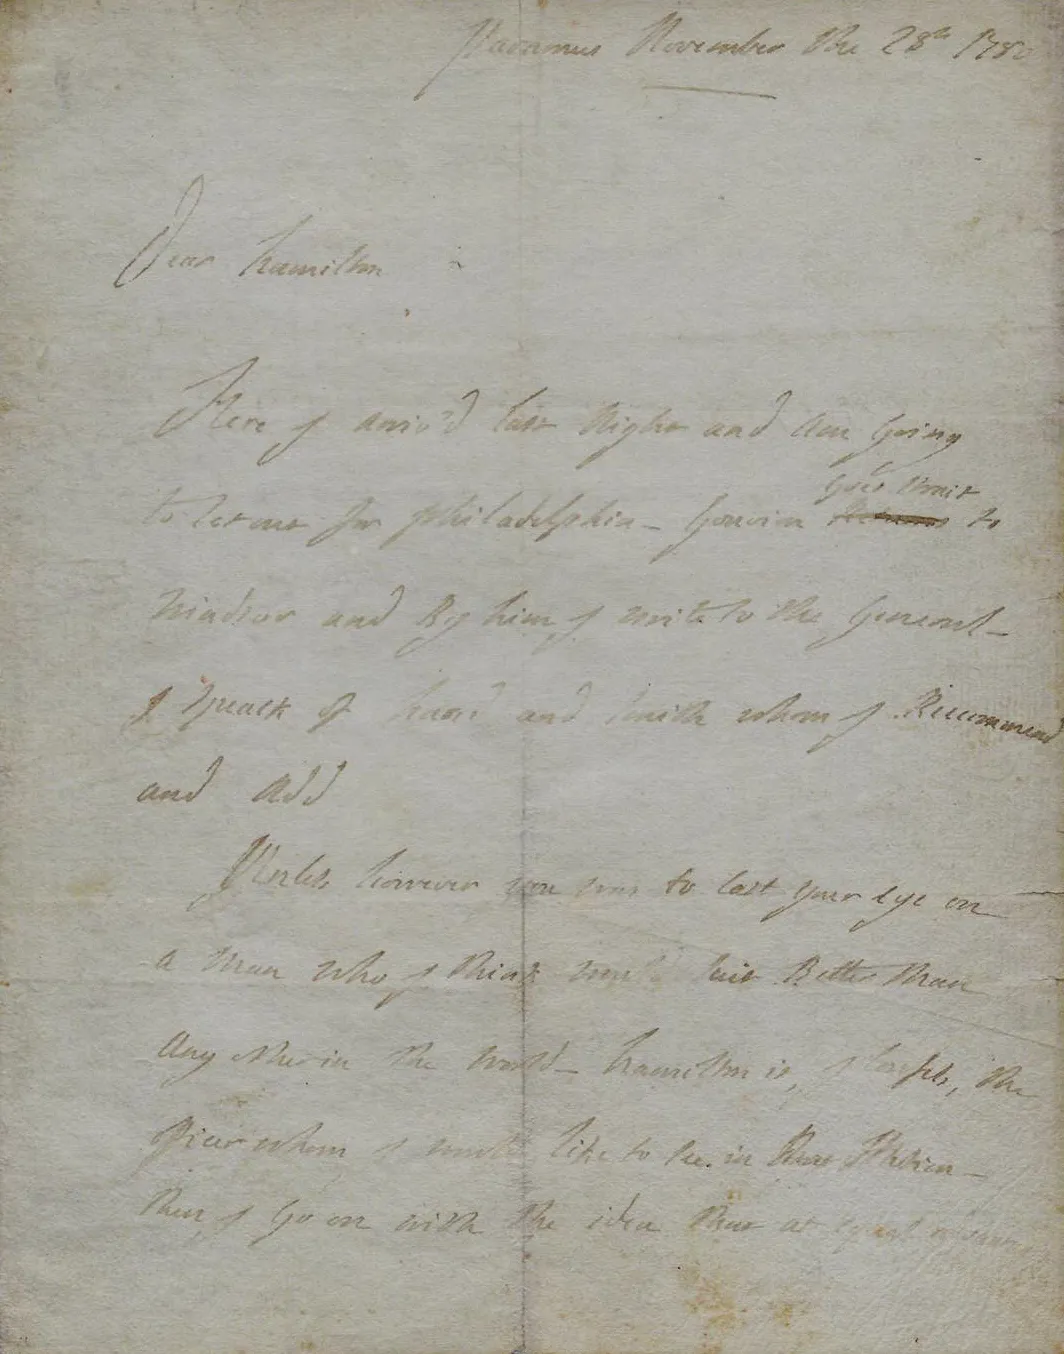 Paramus November the 28th 1780
Dear hamilton
Here I arriv'd last Night and am Going
Goes Strait
to set out for philadelphia - Gouvion Returns to
windsor and By him I write to the General -
I speack of hand and Smith whom I Recommend
and add
Unless however you was to cast your eye on
a man who I think would suit Better than
Any other in the world - hamilton is, I confess, the
officer whom I would like to see in that Station -
then I Go on with the idea that at equal advantages